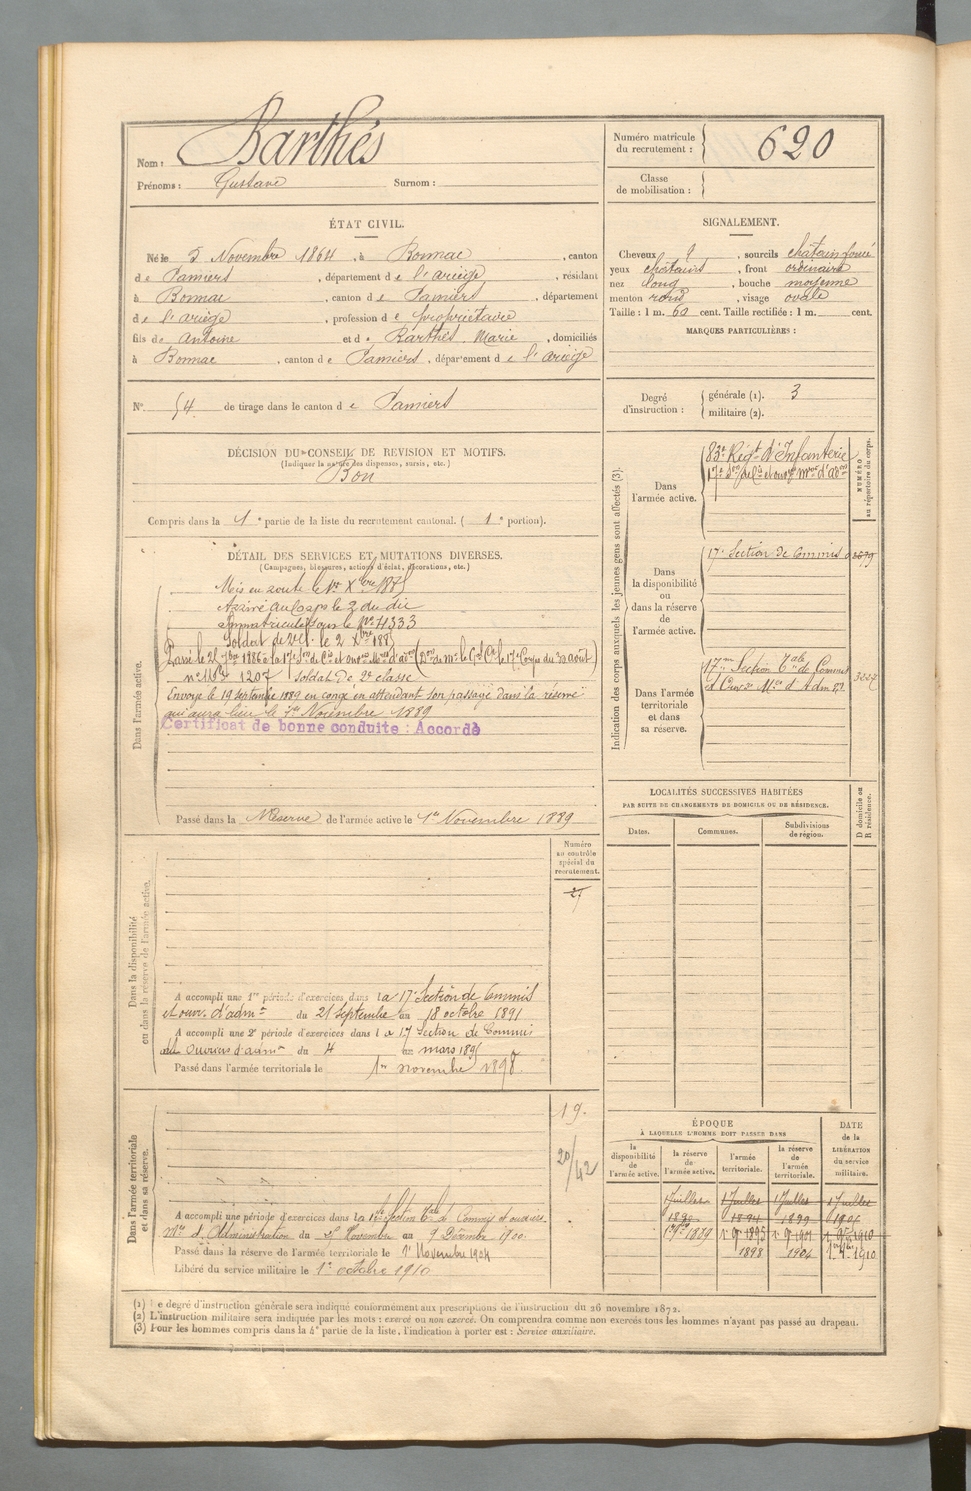 Nom : Barthés
Prénoms : Gustave Surnom :
Numéro matricule du recrutement : 620
Classe de mobilisation :
ÉTAT CIVIL.
Né le 5 Novembre 1864, à Bonnac, canton
de Pamiers, département de l'ariège, résidant
à Bonnac, canton de Pamiers, département
de l'ariège, profession de propriétaire
fils de Antoine et de Barthés Marie, domiciliés
à Bonnac, canton de Pamiers, département de l'ariège
N° 54 de tirage dans le canton de Pamiers
SIGNALEMENT.
Cheveux d, sourcils chatain foncé
yeux chatains, front ordinaire
nez long, bouche moyenne
menton rond, visage ovale
Taille : 1 m. 60 cent. Taille rectifiée : 1 m. cent.
MARQUES PARTICULIÈRES :
Degré d'instruction : générale (1). 3
militaire (2).
DÉCISION DU CONSEIL DE REVISION ET MOTIFS.
(Indiquer la nature des dispenses, sursis, etc.)
Bon
Compris dans la 1e partie de la liste du recrutement cantonal. ( 1e portion).
DÉTAIL DES SERVICES ET MUTATIONS DIVERSES.
(Campagnes, blessures, actions d'éclat, décorations, etc.)
Dans l'armée active.
Mis en route le 1er Xbre 1885
Arrivé au Corps le 2 du dit
immatriculé sous le No 4333
Soldat de 2e Cl. le 2 Xbre 1885
Passé le 25 7bre 1886 à la 17e Son de Cis et ouvrs Mres d'aon (Don du Mr le Gal Ct le 17e Corps du 30 août)
1207 Soldat de 2e classe
Envoyé le 19 septembre 1889 en congé en attendant son passage dans la réserve
qui aura lieu le 1er Novembre 1889
Certificat de bonne conduite : Accordé
Passé dans la Réserve de l'armée active le 1er Novembre 1889
Indication des corps auxquels les jeunes gens sont affectés (3).
NUMÉRO au répertoire du corps.
Dans l'armée active.
83e Regt d'Infanterie
Dans la disponibilité ou dans la réserve de l'armée active.
17e Section de Commis
Dans l'armée territoriale et dans sa réserve.
17me Section Tale de Commis
LOCALITÉS SUCCESSIVES HABITÉES
PAR SUITE DE CHANGEMENTS DE DOMICILE OU DE RÉSIDENCE.
Dates. Communes. Subdivisions de région. D domicile ou R résidence.
Dans la disponibilité ou dans la réserve de l'armée active.
Numéro au contrôle spécial du recrutement.
A accompli une 1re période d'exercices dans la 17e Section de Commis
et ouv. d'admon du 21 Septembre au 18 octobre 1891
A accompli une 2e période d'exercices dans la 17 Section de Commis
Ouvriers d'admon du 4 au mars 1895
Passé dans l'armée territoriale le 1er novembre 1898
Dans l'armée territoriale et dans sa réserve.
19.
20/42
A accompli une période d'exercices dans la 16e Section Tale de Commis et ouvriers
Mre d'Administration du 25 Novembre au 9 Décembre 1900
Passé dans la réserve de l'armée territoriale le 1er Novembre 1904
Libéré du service militaire le 1er octobre 1910
ÉPOQUE
À LAQUELLE L'HOMME DOIT PASSER DANS
DATE de la LIBÉRATION du service militaire.
la disponibilité de l'armée active. la réserve de l'armée active. l'armée territoriale. la réserve de l'armée territoriale.
1 Juillet 1 Juillet 1 Juillet 1 Juillet
1890 1894 1899 1904
1889 1895 1901 1910
1898 1904 1910
(1) Le degré d'instruction générale sera indiqué conformément aux prescriptions de l'instruction du 26 novembre 1872.
(2) L'instruction militaire sera indiquée par les mots : exercé ou non exercé. On comprendra comme non exercés tous les hommes n'ayant pas passé au drapeau.
(3) Pour les hommes compris dans la 4e partie de la liste, l'indication à porter est : Service auxiliaire.